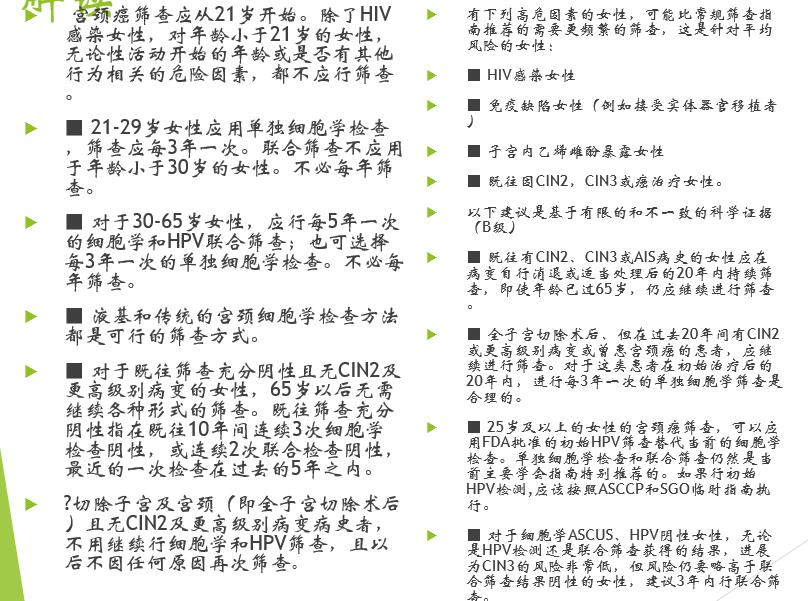 解读
宫颈癌筛查应从21岁开始。除了HIV
感染女性，对年龄小于21岁的女性，
无论性活动开始的年龄或是否有其他
行为相关的危险因素，都不应行筛查
。
■ 21-29岁女性应用单独细胞学检查
，筛查应每3年一次。联合筛查不应用
于年龄小于30岁的女性。不必每年筛
查。
■ 对于30-65岁女性，应行每5年一次
的细胞学和HPV联合筛查；也可选择
每3年一次的单独细胞学检查。不必每
年筛查。
■ 液基和传统的宫颈细胞学检查方法
都是可行的筛查方式。
■ 对于既往筛查充分阴性且无CIN2及
更高级别病变的女性，65岁以后无需
继续各种形式的筛查。既往筛查充分
阴性指在既往10年间连续3次细胞学
检查阴性，或连续2次联合检查阴性，
最近的一次检查在过去的5年之内。
?切除子宫及宫颈（即全子宫切除术后
）且无CIN2及更高级别病变病史者，
不用继续行细胞学和HPV筛查，且以
后不因任何原因再次筛查。
有下列高危因素的女性，可能比常规筛查指
南推荐的需要更频繁的筛查，这是针对平均
风险的女性：
■ HIV感染女性
■ 免疫缺陷女性（例如接受实体器官移植者
）
■ 子宫内乙烯雌酚暴露女性
■ 既往因CIN2，CIN3或癌治疗女性。
以下建议是基于有限的和不一致的科学证据
（B级）
■ 既往有CIN2、CIN3或AIS病史的女性应在
病变自行消退或适当处理后的20年内持续筛
查，即使年龄已过65岁，仍应继续进行筛查
。
■ 全子宫切除术后、但在过去20年间有CIN2
或更高级别病变或曾患宫颈癌的患者，应继
续进行筛查。对于这类患者在初始治疗后的
20年内，进行每3年一次的单独细胞学筛查是
合理的。
■ 25岁及以上的女性的宫颈癌筛查，可以应
用FDA批准的初始HPV筛查替代当前的细胞学
检查。单独细胞学检查和联合筛查仍然是当
前主要学会指南特别推荐的。如果行初始
HPV检测,应该按照ASCCP和SGO临时指南执
行。
■ 对于细胞学ASCUS、HPV阴性女性，无论
是HPV检测还是联合筛查获得的结果，进展
为CIN3的风险非常低，但风险仍要略高于联
合筛查结果阴性的女性，建议3年内行联合筛
查。